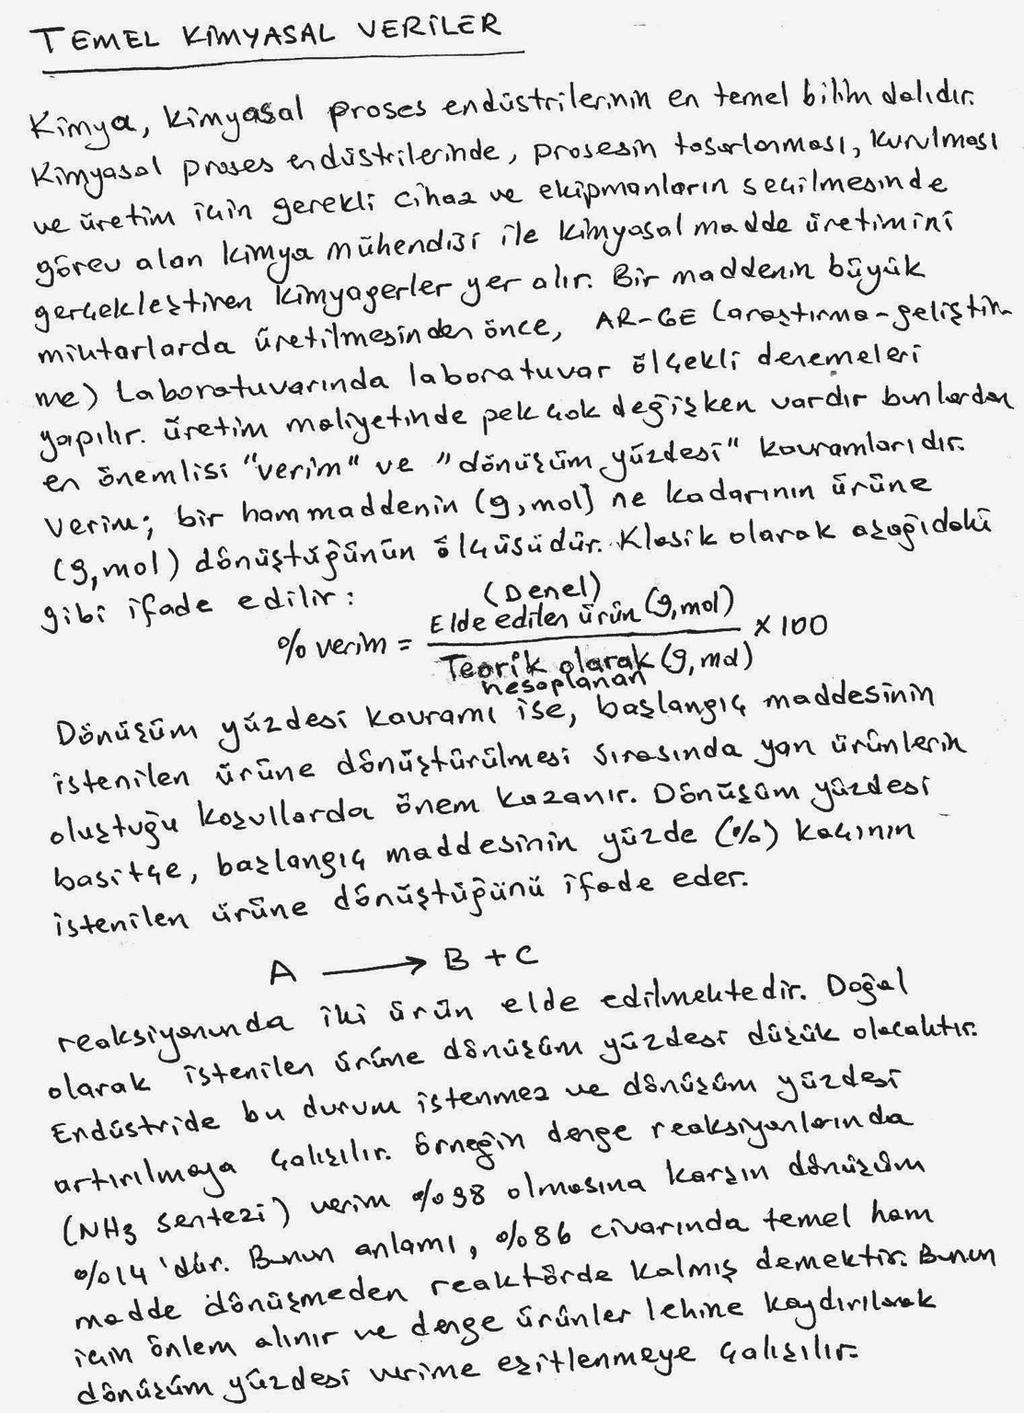 TEMEL KİMYASAL VERİLER
Kimya, kimyasal proses endüstrilerinin en temel bilim dalıdır.
Kimyasal proses endüstrilerinde, prosesin tasarlanması, kurulması
ve üretim için gerekli cihaz ve ekipmanların seçilmesinde
görev alan kimya mühendisi ile kimyasal madde üretimini
gerçekleştiren kimyagerler yer alır. Bir maddenin büyük
miktarlarda üretilmesinden önce, AR-GE (araştırma-geliştir-
me) Laboratuvarında laboratuvar ölçekli denemeleri
yapılır. Üretim maliyetinde pek çok değişken vardır bunlardan
en önemlisi "verim" ve "dönüşüm yüzdesi" kavramlarıdır.
Verim; bir hammaddenin (g,mol) ne kadarının ürüne
(g,mol) dönüştüğünün ölçüsüdür. Klasik olarak aşağıdaki
gibi ifade edilir:
(Denel)
% verim = Elde edilen ürün (g,mol) x 100
Teorik olarak (g,mol)
hesaplanan
Dönüşüm yüzdesi kavramı ise, başlangıç maddesinin
istenilen ürüne dönüştürülmesi sırasında yan ürünlerin
oluştuğu koşullarda önem kazanır. Dönüşüm yüzdesi
basitçe, başlangıç maddesinin yüzde (%) kaçının
istenilen ürüne dönüştüğünü ifade eder.
A → B + C
reaksiyonunda iki ürün elde edilmektedir. Doğal
olarak istenilen ürüne dönüşüm yüzdesi düşük olacaktır.
Endüstride bu durum istenmez ve dönüşüm yüzdesi
artırılmaya çalışılır. Örneğin denge reaksiyonlarında
(NH3 sentezi) verim %98 olmasına karşın dönüşüm
%14'dür. Bunun anlamı, %86 civarında temel ham
madde dönüşmeden reaktörde kalmış demektir. Bunun
için önlem alınır ve denge ürünler lehine kaydırılarak
dönüşüm yüzdesi verime eşitlenmeye çalışılır.